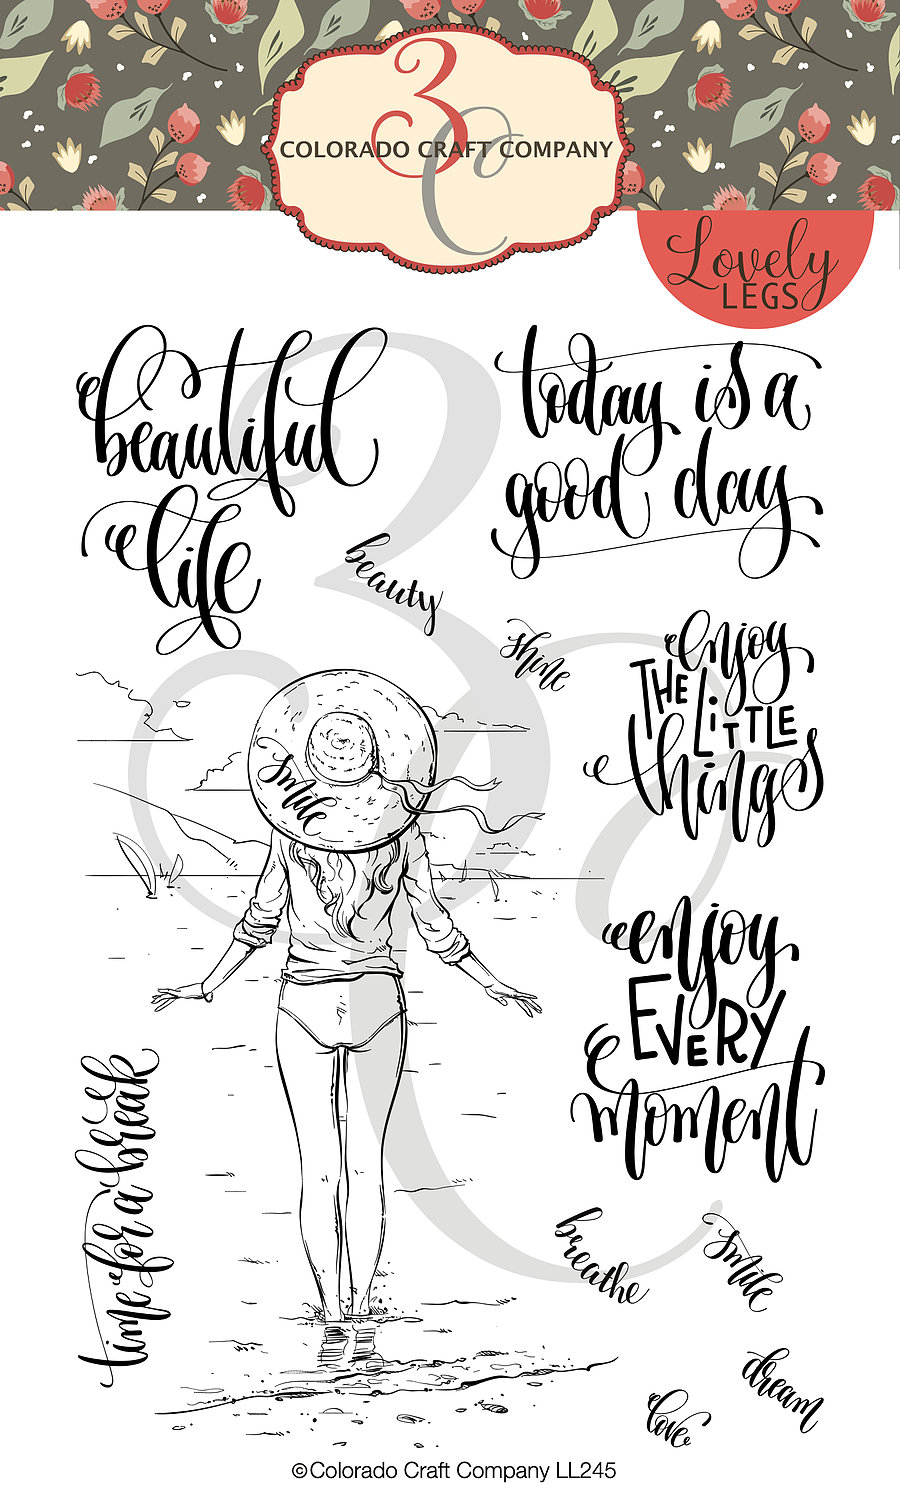 3C
COLORADO CRAFT COMPANY
Lovely
LEGS
beautiful
life
today is a
good day
beauty
shine
enjoy
THE LiTTLE
things
smile
enjoy
EVERY
moment
time for a break
breathe
smile
dream
love
©Colorado Craft Company LL245